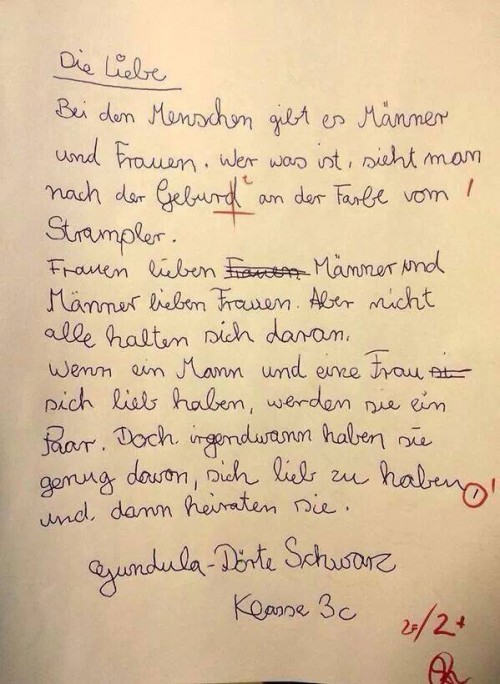 Die Liebe
Bei den Menschen gibt es Männer
und Frauen. Wer was ist, sieht man
nach der Geburd t an der Farbe vom
Strampler.
Frauen lieben Frauen Männer und
Männer lieben Frauen. Aber nicht
alle halten sich daran.
Wenn ein Mann und eine Frau si
sich lieb haben, werden sie ein
Paar. Doch irgendwann haben sie
genug davon, sich lieb zu haben,
und dann heiraten sie.
Gundula-Dörte Schwarz
Klasse 3c
2F/2+